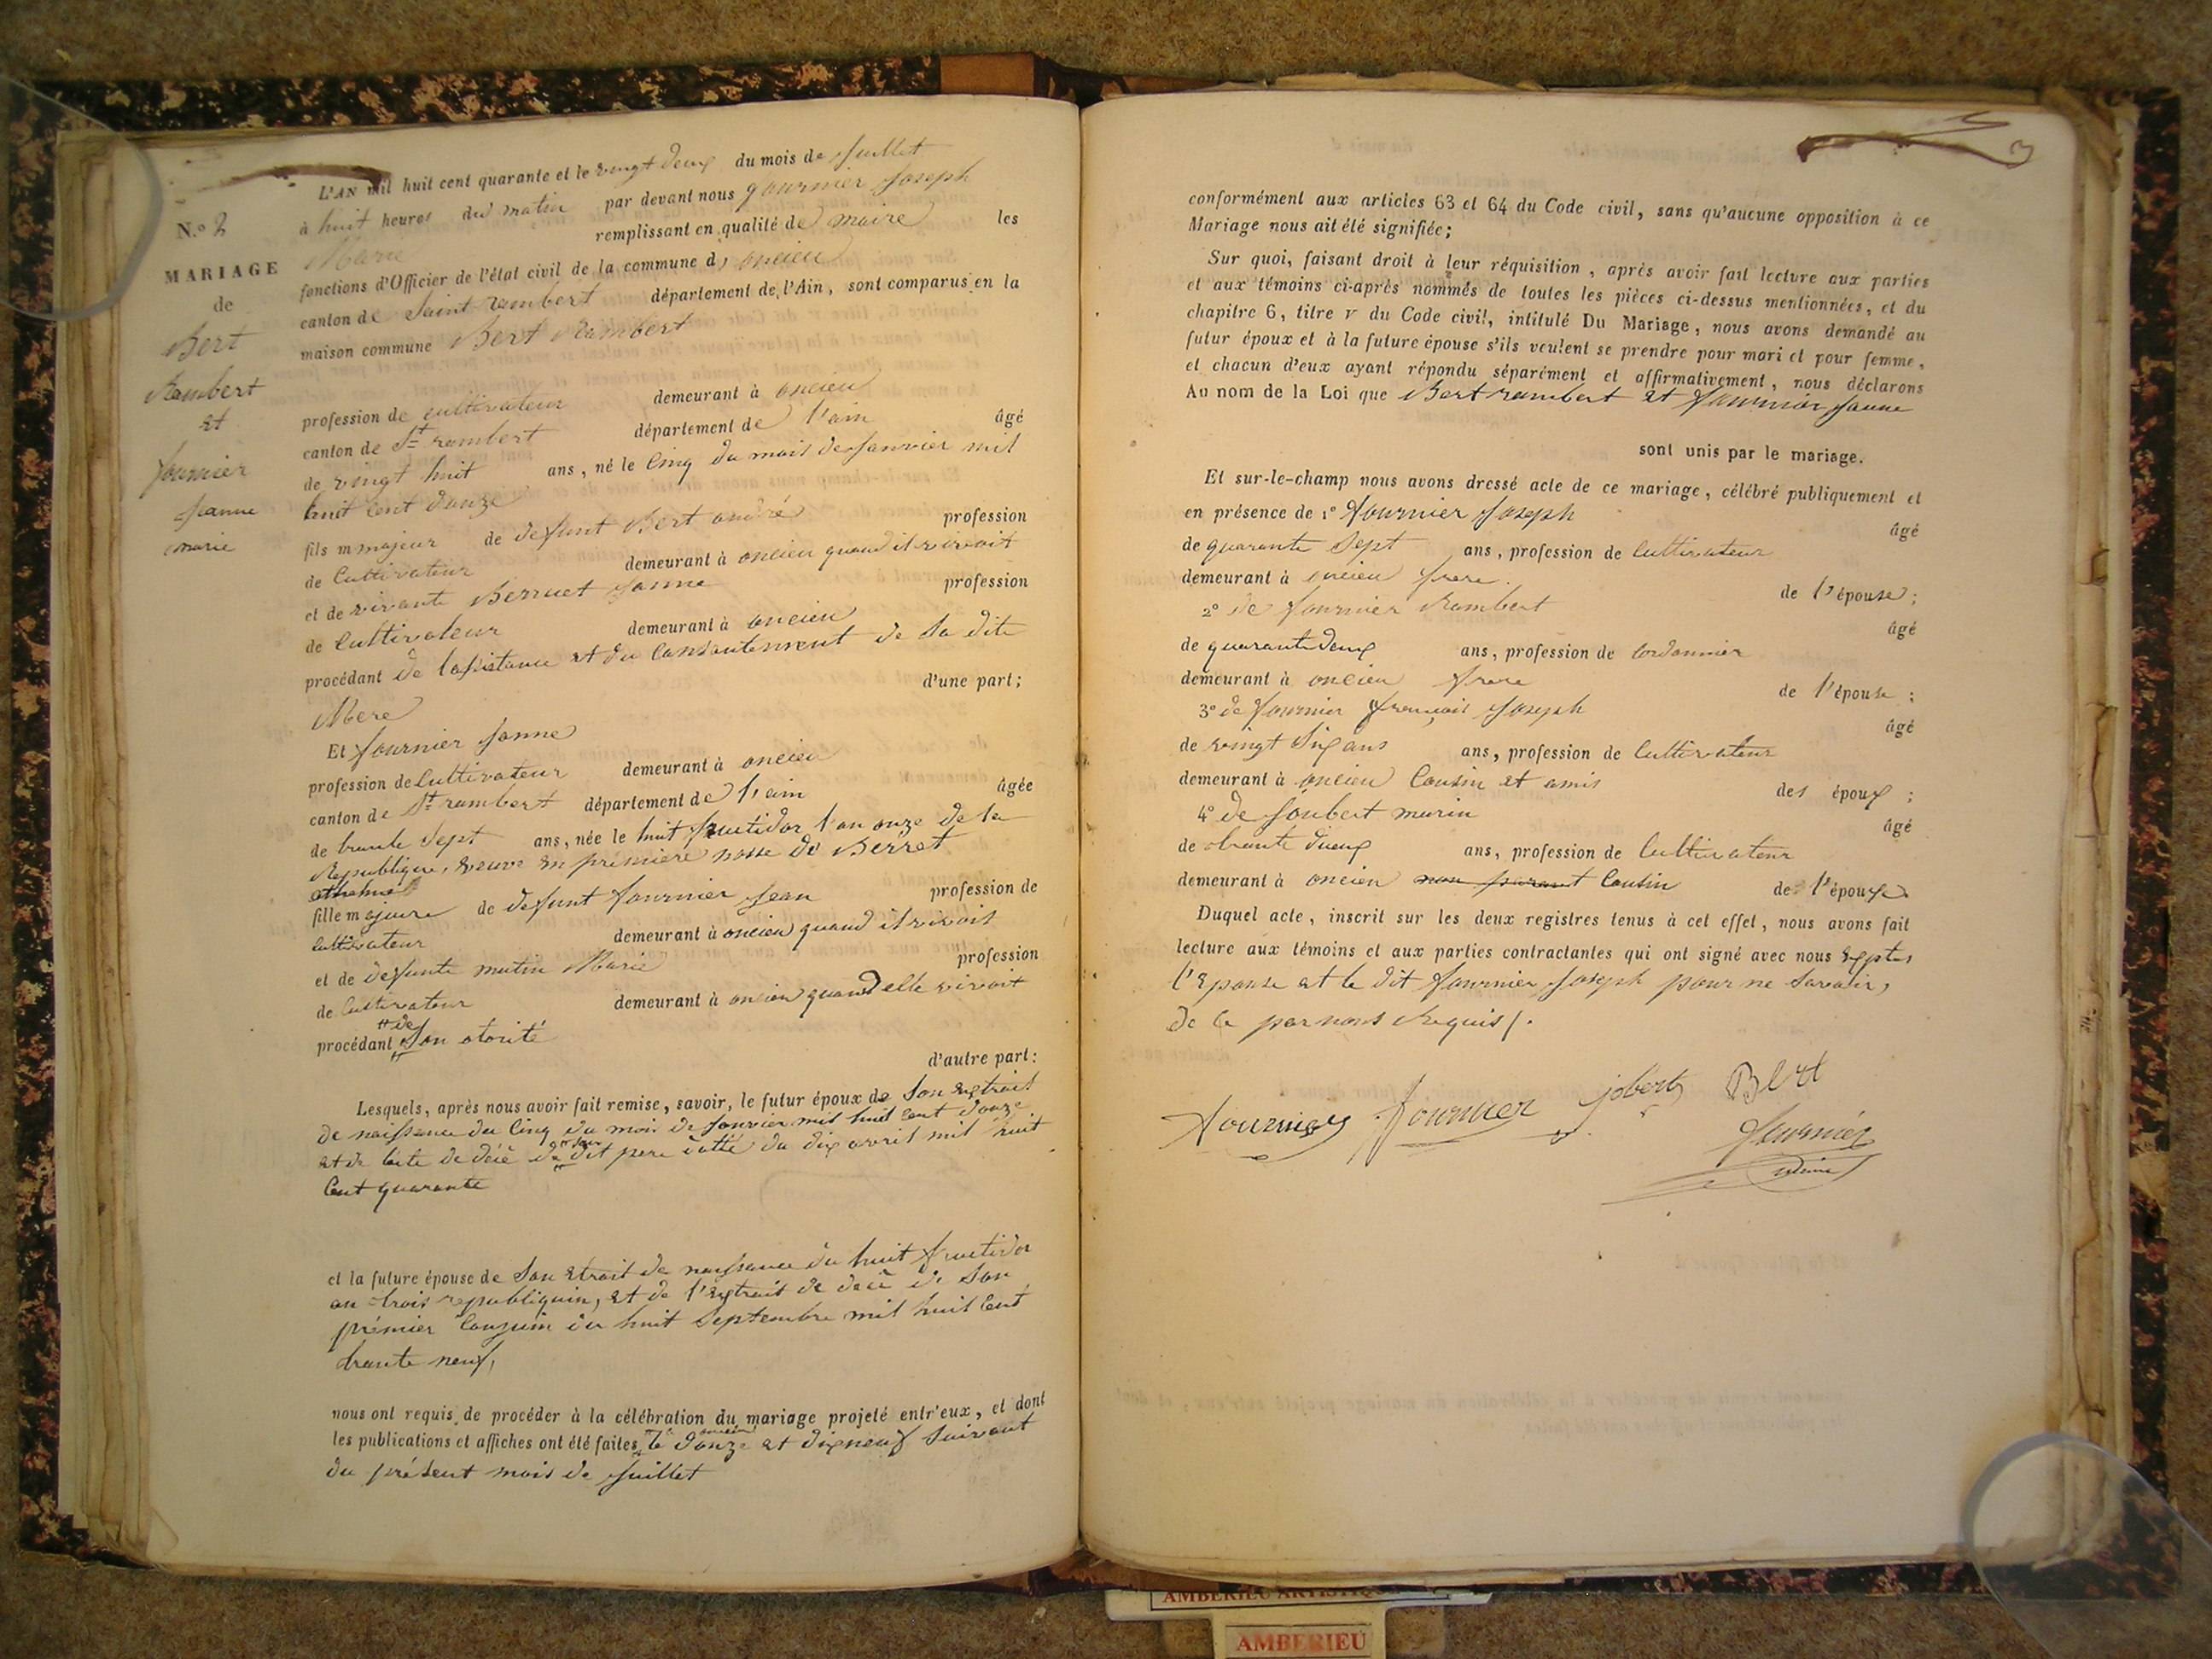 L'AN mil huit cent quarante et le vingt deux du mois de Juillet
N.º 2
à huit heures du matin par devant nous fournier Joseph
Marie remplissant en qualité de maire les
MARIAGE
fonctions d'Officier de l'état civil de la commune d'oncieu
de
canton de Saint rambert département de l'Ain, sont comparus en la
maison commune Bert Rambert
Bert
Rambert
et
fournier
Jeanne
marie
profession de cultivateur demeurant à oncieu
canton de St rambert département de l'ain âgé
de vingt huit ans, né le Cinq du mois de Janvier mil
huit Cent douze
fils m majeur de defunt Bert andré profession
de Cultivateur demeurant à oncieu quand il vivoit
et de vivante Berruet Janne profession
de Cultivateur demeurant à oncieu
procédant de lasistance et du Consantement de Sa dite
Mere d'une part;
Et fournier Janne
profession de Cultivateur demeurant à oncieu
canton de St rambert département de l'ain âgée
de trante Sept ans, née le huit fructidor l'an onze de la
Republique, veuve en premiere nosse de Berret
fille majeure de defunt fournier Jean profession de
cultivateur demeurant à oncieu quand il vivoit
et de defunte mutin Marie profession
de Cultivateur demeurant à oncieu quand elle vivoit
procédant de Son otorité
d'autre part:
Lesquels, après nous avoir fait remise, savoir, le futur époux de Son Extrait
de naissance du Cinq du mois de Janvier mil huit Cent douze
et de lacte de décè de son dit pere datté du dix avril mil huit
Cent quarante
et la future épouse de Son Etrait de naissance du huit fructidor
an trois republiquin, et de l'Extrait de decè de Son
prémier Conjuin du huit Septembre mil huit Cent
trante neuf,
nous ont requis de procéder à la célébration du mariage projeté entr'eux, et dont
les publications et affiches ont été faites le douze et dixneuf Suivant
du présent mois de Juillet
3
conformément aux articles 63 et 64 du Code civil, sans qu'aucune opposition à ce
Mariage nous ait été signifiée;
Sur quoi, faisant droit à leur réquisition, après avoir fait lecture aux parties
et aux témoins ci-après nommés de toutes les pièces ci-dessus mentionnées, et du
chapitre 6, titre v du Code civil, intitulé Du Mariage, nous avons demandé au
futur époux et à la future épouse s'ils veulent se prendre pour mari et pour femme,
et chacun d'eux ayant répondu séparément et affirmativement, nous déclarons
Au nom de la Loi que Bert rambert et fournier Janne
sont unis par le mariage.
Et sur-le-champ nous avons dressé acte de ce mariage, célébré publiquement et
en présence de 1º fournier Joseph âgé
de quarante Sept ans, profession de Cultivateur
demeurant à oncieu frere de l'épouse;
2º de fournier Rambert âgé
de quarante deux ans, profession de Cordonnier
demeurant à oncieu frere de l'épouse;
3º de fournier françois Joseph âgé
de vingt Six ans ans, profession de Cultivateur
demeurant à oncieu Cousin et amis des époux;
4º de Joubert murin âgé
de trante dieux ans, profession de Cultivateur
demeurant à oncien non parant Cousin de l'épouse
Duquel acte, inscrit sur les deux registres tenus à cet effet, nous avons fait
lecture aux témoins et aux parties contractantes qui ont signé avec nous Exptes
l'Epouse et le dit fournier Joseph pour ne Savoir,
de Ce par nous Requis.
fournier fournier jobert Bert
fournier
maire
AMBERIEU ARTISTIQUE
AMBERIEU